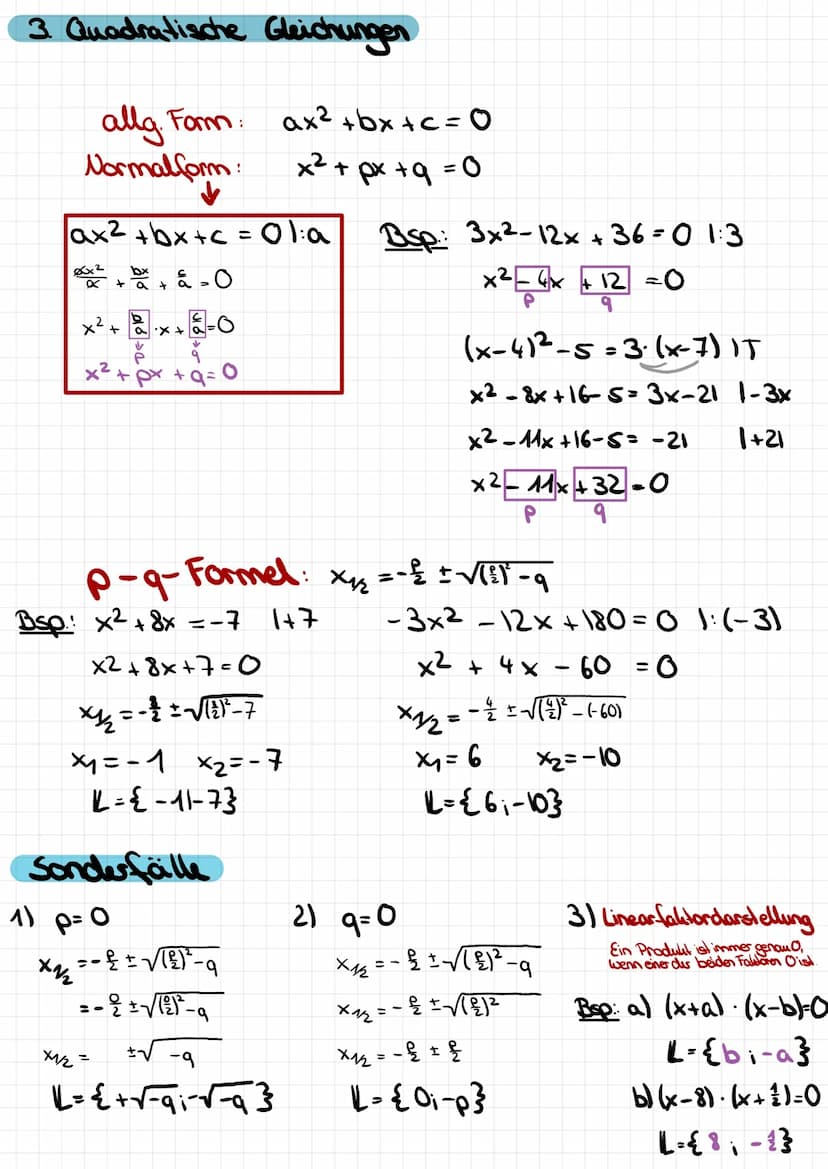 3. Quadratische Gleichungen
allg. Form: ax² + bx + c = 0
Normalform: x² + px + q = 0
ax² + bx + c = 0 |:a
ax²/a + bx/a + c/a = 0
x² + b/a · x + c/a = 0
p q
x² + px + q = 0
Bsp.: 3x² - 12x + 36 = 0 |:3
x² - 4x + 12 = 0
p q
(x-4)² - 5 = 3·(x-7) |T
x² - 8x + 16 - 5 = 3x - 21 |-3x
x² - 11x + 16 - 5 = -21 |+21
x² - 11x + 32 = 0
p q
p-q-Formel: x1/2 = -p/2 ± √((p/2)² - q)
Bsp.: x² + 8x = -7 |+7
x² + 8x + 7 = 0
x1/2 = -8/2 ± √((8/2)² - 7)
x1 = -1 x2 = -7
L = {-1|-7}
-3x² - 12x + 180 = 0 |:(-3)
x² + 4x - 60 = 0
x1/2 = -4/2 ± √((4/2)² - (-60))
x1 = 6 x2 = -10
L = {6;-10}
Sonderfälle
1) p = 0
x1/2 = -p/2 ± √((p/2)² - q)
= -0/2 ± √((0/2)² - q)
x1/2 = ±√-q
L = {+√-q;-√-q}
2) q = 0
x1/2 = -p/2 ± √((p/2)² - q)
x1/2 = -p/2 ± √(p/2)²
x1/2 = -p/2 ± p/2
L = {0;-p}
3) Linearfaktordarstellung
Ein Produkt ist immer genau 0,
wenn einer der beiden Faktoren 0 ist.
Bsp: a) (x+a) · (x-b)=0
L = {b;-a}
b) (x-8) · (x+1/2)=0
L = {8;-1/2}